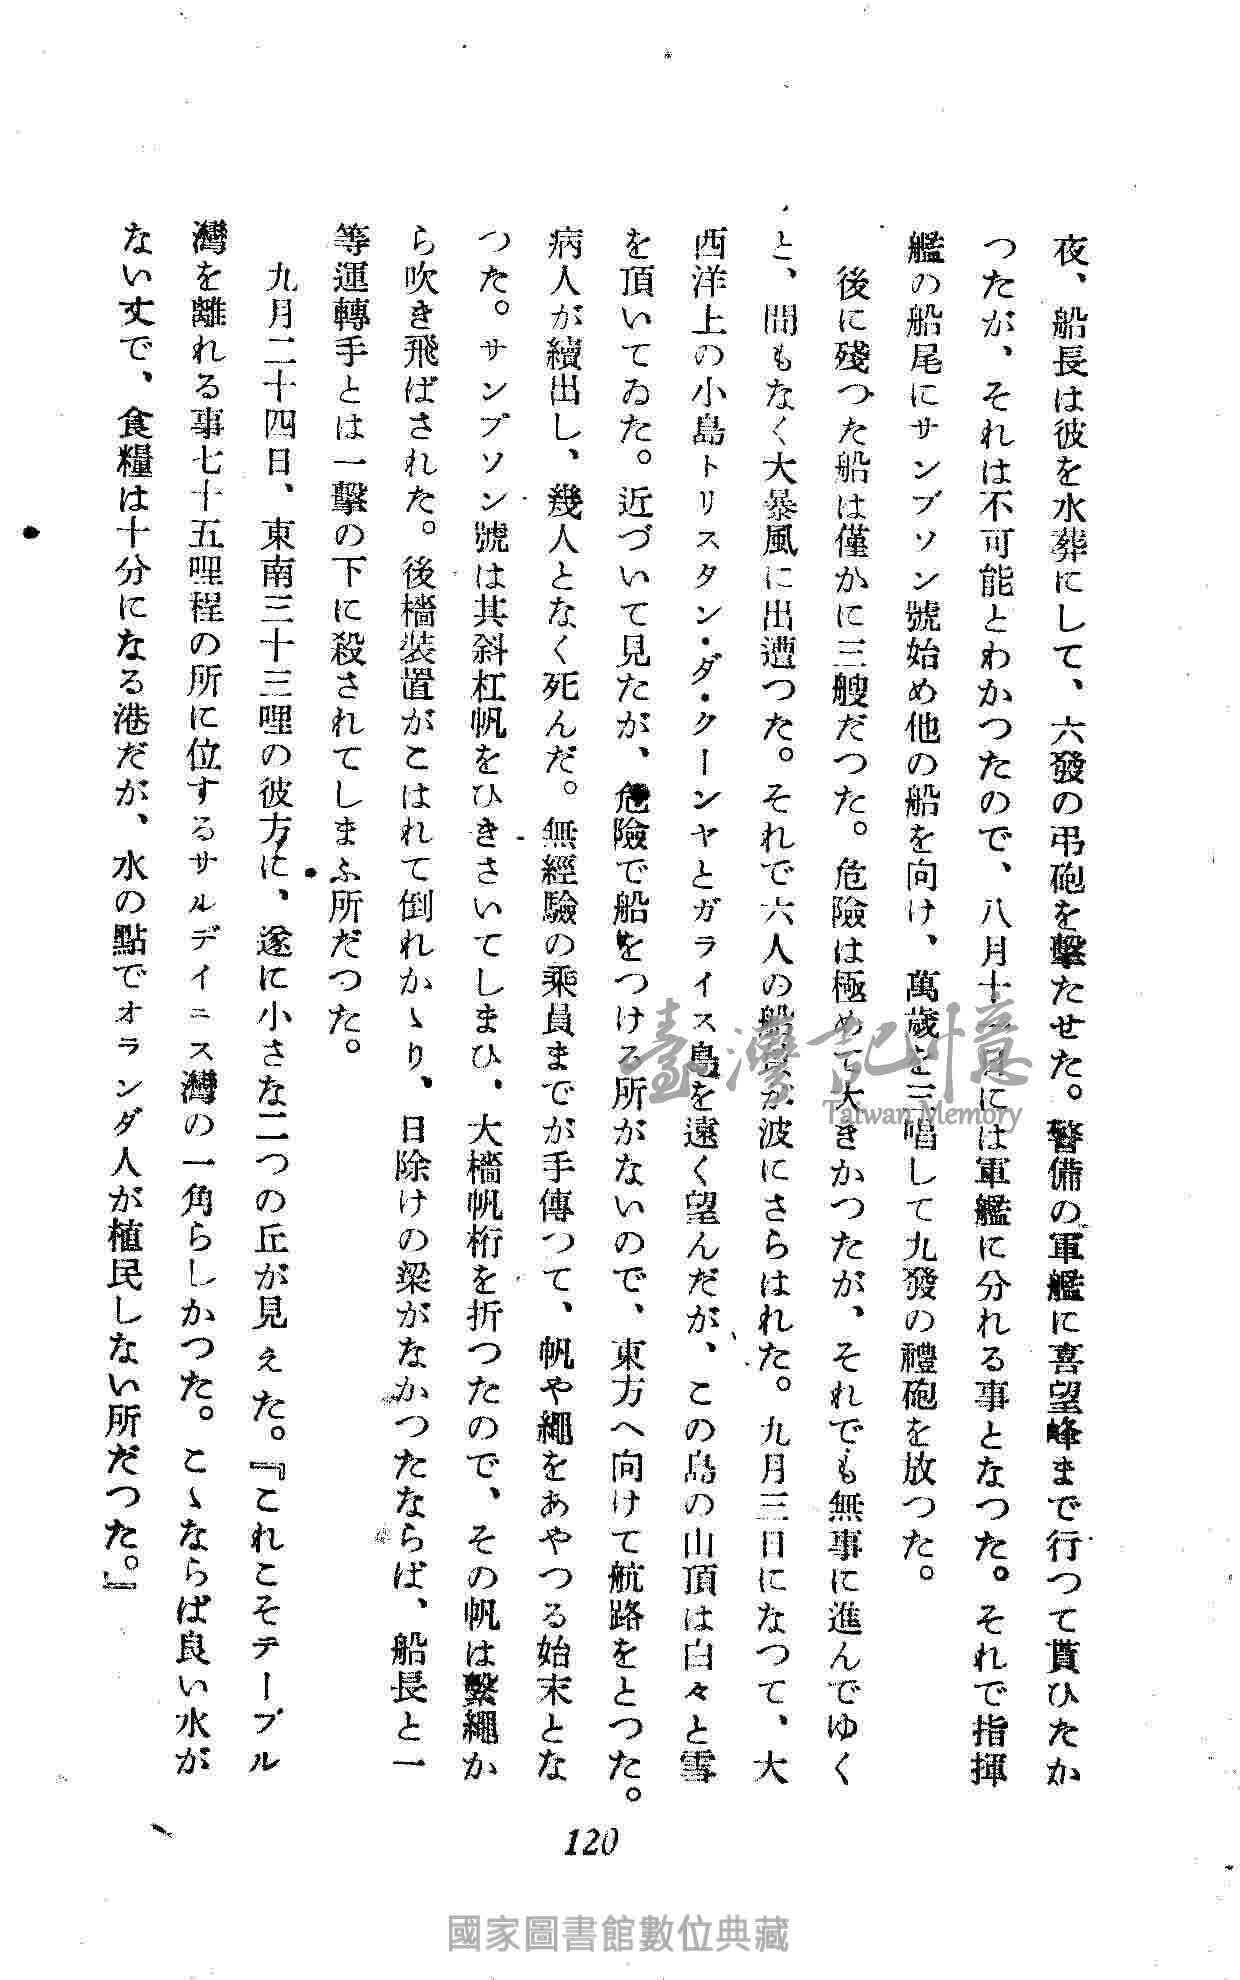 夜、船長は彼を水葬にして、六發の弔砲を擊たせた。警備の軍艦に喜望峰まで行つて貰ひたか
つたが、それは不可能とわかつたので、八月十一日には軍艦に分れる事となつた。それで指揮
艦の船尾にサンプソン號始め他の船を向け、萬歲を三唱して九發の禮砲を放つた。
後に殘つた船は僅かに三艘だつた。危險は極めて大きかつたが、それでも無事に進んでゆく
と、間もなく大暴風に出遭つた。それで六人の船員が波にさらはれた。九月三日になつて、大
西洋上の小島トリスタン・ダ・クーンヤとガライス島を遠く望んだが、この島の山頂は白々と雪
を頂いてゐた。近づいて見たが、危險で船をつける所がないので、東方へ向けて航路をとつた。
病人が續出し、幾人となく死んだ。無經驗の乘員までが手傳つて、帆や繩をあやつる始末とな
つた。サンプソン號は其斜杠帆をひきさいてしまひ、大檣帆桁を折つたので、その帆は繫繩か
ら吹き飛ばされた。後檣裝置がこはれて倒れかゝり、日除けの梁がなかつたならば、船長と一
等運轉手とは一擊の下に殺されてしまふ所だつた。
九月二十四日、東南三十三哩の彼方に、遂に小さな二つの丘が見えた。『これこそテーブル
灣を離れる事七十五哩程の所に位するサルデイニス灣の一角らしかつた。こゝならば良い水が
ない丈で、食糧は十分になる港だが、水の點でオランダ人が植民しない所だつた。』
120
臺灣記憶
Taiwan Memory
國家圖書館數位典藏